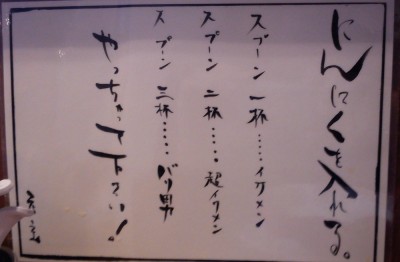 にんにくを入れる。
スプーン 一杯……イケメン
スプーン 二杯……超イケメン
スプーン 三杯……バリ男
やっちゃって下さい!